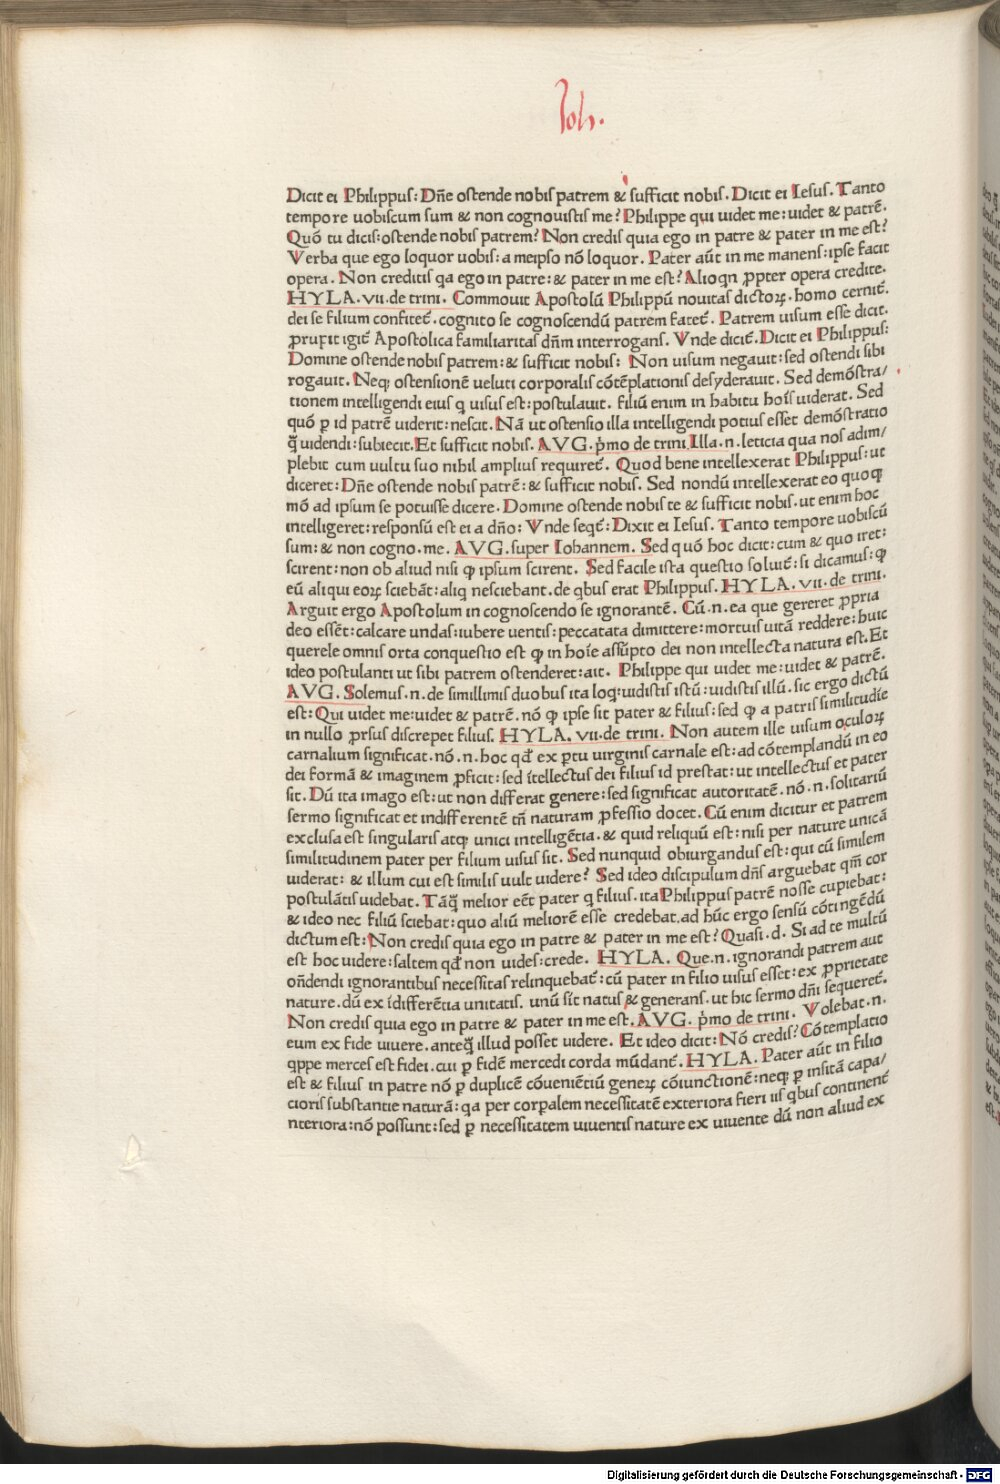 Ioh.
Dicit ei Philippus: Dn̄e ostende nobis patrem & sufficit nobis. Dicit ei Iesus. Tanto
tempore uobiscum sum & non cognouistis me? Philippe qui uidet me: uidet & patrē.
Quō tu dicis: ostende nobis patrem? Non credis quia ego in patre & pater in me est?
Verba que ego loquor uobis: a meipso nō loquor. Pater aūt in me manens: ipse facit
opera. Non creditis qa ego in patre: & pater in me est? Alioqn ꝓpter opera credite.
HYLA. vii. de trini. Commouit Apostolū Philippū nouitas dictoꝝ. homo cernit̄.
dei se filium confitet̄. cognito se cognoscendū patrem fatet̄. Patrem uisum esse dicit.
ꝓrupit igit̄ Apostolica familiaritas dn̄m interrogans. Vnde dicit̄. Dicit ei Philippus:
Domine ostende nobis patrem: & sufficit nobis: Non uisum negauit: sed ostendi sibi
rogauit. Neqꝫ ostensionē ueluti corporalis cōtēplationis desyderauit. Sed demōstra/
tionem intelligendi eius q uisus est: postulauit. filiū enim in habitu hoīs uiderat. Sed
quō ꝑ id patrē uiderit: nescit. Nā ut ostensio illa intelligendi potius esset demōstratio
q̄̄ uidendi: subiecit. Et sufficit nobis. AVG. p̄mo de trini. Illa. n. leticia qua nos adim/
plebit cum uultu suo nihil amplius requiret̄. Quod bene intellexerat Philippus: ut
diceret: Dn̄e ostende nobis patrē: & sufficit nobis. Sed nondū intellexerat eo quoqꝫ
mō ad ipsum se potuisse dicere. Domine ostende nobis te & sufficit nobis. ut enim hoc
intelligeret: responsū est ei a dn̄o: Vnde seqt̄: Dixit ei Iesus. Tanto tempore uobiscū
sum: & non cogno. me. AVG. super Iohannem. Sed quō hoc dicit: cum & quo iret:
scirent: non ob aliud nisi ꝙ ipsum scirent. Sed facile ista questio soluit̄: si dicamus: ꝙ
eū aliqui eoꝝ sciebāt: aliq nesciebant. de qbus erat Philippus. HYLA. vii. de trini.
Arguit ergo Apostolum in cognoscendo se ignorantē. Cū. n. ea que gereret ꝓpria
deo essēt: calcare undas: iubere uentis: peccatata dimittere: mortuis uitā reddere: huic
querele omnis orta conquestio est ꝙ in hoīe assūpto dei non intellecta natura est. Et
ideo postulanti ut sibi patrem ostenderet: ait. Philippe qui uidet me: uidet & patrē.
AVG. Solemus. n. de simillimis duobus ita loq: uidistis istū: uidistis illū. sic ergo dictū
est: Qui uidet me: uidet & patrē. nō ꝙ ipse sit pater & filius: sed ꝙ a patris similitudīe
in nullo ꝓrsus discrepet filius. HYLA. vii. de trini. Non autem ille uisum oculoꝝ
carnalium significat. nō. n. hoc qd̄ ex ꝑtu uirginis carnale est: ad cōtemplandū in eo
dei formā & imaginem ꝓficit: sed ītellectus dei filius id prestat: ut intellectus et pater
sit. Dū ita imago est: ut non differat genere: sed significat autoritatē. nō. n. solitariū
sermo significat et indifferentē tn̄ naturam ꝓfessio docet. Cū enim dicitur et patrem
exclusa est singularis atqꝫ unici intelligētia. & quid reliquū est: nisi per nature unicā
similitudinem pater per filium uisus sit. Sed nunquid obiurgandus est: qui cū similem
uiderat: & illum cui est similis uult uidere? Sed ideo discipulum dn̄s arguebat qm̄ cor
postulātis uidebat. Tāq̄̄ melior eēt pater q filius. ita Philippus patrē nosse cupiebat:
& ideo nec filiū sciebat: quo aliū meliorē esse credebat. ad hūc ergo sensū cōtingēdū
dictum est: Non credis quia ego in patre & pater in me est? Quasi. d. Si ad te multū
est hoc uidere: saltem qd̄ non uides: crede. HYLA. Que. n. ignorandi patrem aut
on̄dendi ignorantibus necessitas relinquebat̄: cū pater in filio uisus esset: ex ꝓprietate
nature. dū ex īdifferētia unitatis. unū sit natus & generans. ut hic sermo dn̄i sequeret̄.
Non credis quia ego in patre & pater in me est. AVG. p̄mo de trini. Volebat. n.
eum ex fide uiuere. anteq̄̄ illud posset uidere. Et ideo dicit: Nō credis? Cōtemplatio
qppe merces est fidei. cui ꝑ fidē mercedi corda mūdant̄. HYLA. Pater aūt in filio
est & filius in patre nō ꝑ duplicē cōueniētiū geneꝝ cōiunctionē: neqꝫ ꝑ insitā capa/
cioris substantie naturā: qa per corꝑalem necessitatē exteriora fieri iis qbus continent̄
nteriora: nō possunt: sed ꝑ necessitatem uiuentis nature ex uiuente dū non aliud ex
Digitalisierung gefördert durch die Deutsche Forschungsgemeinschaft - DFG